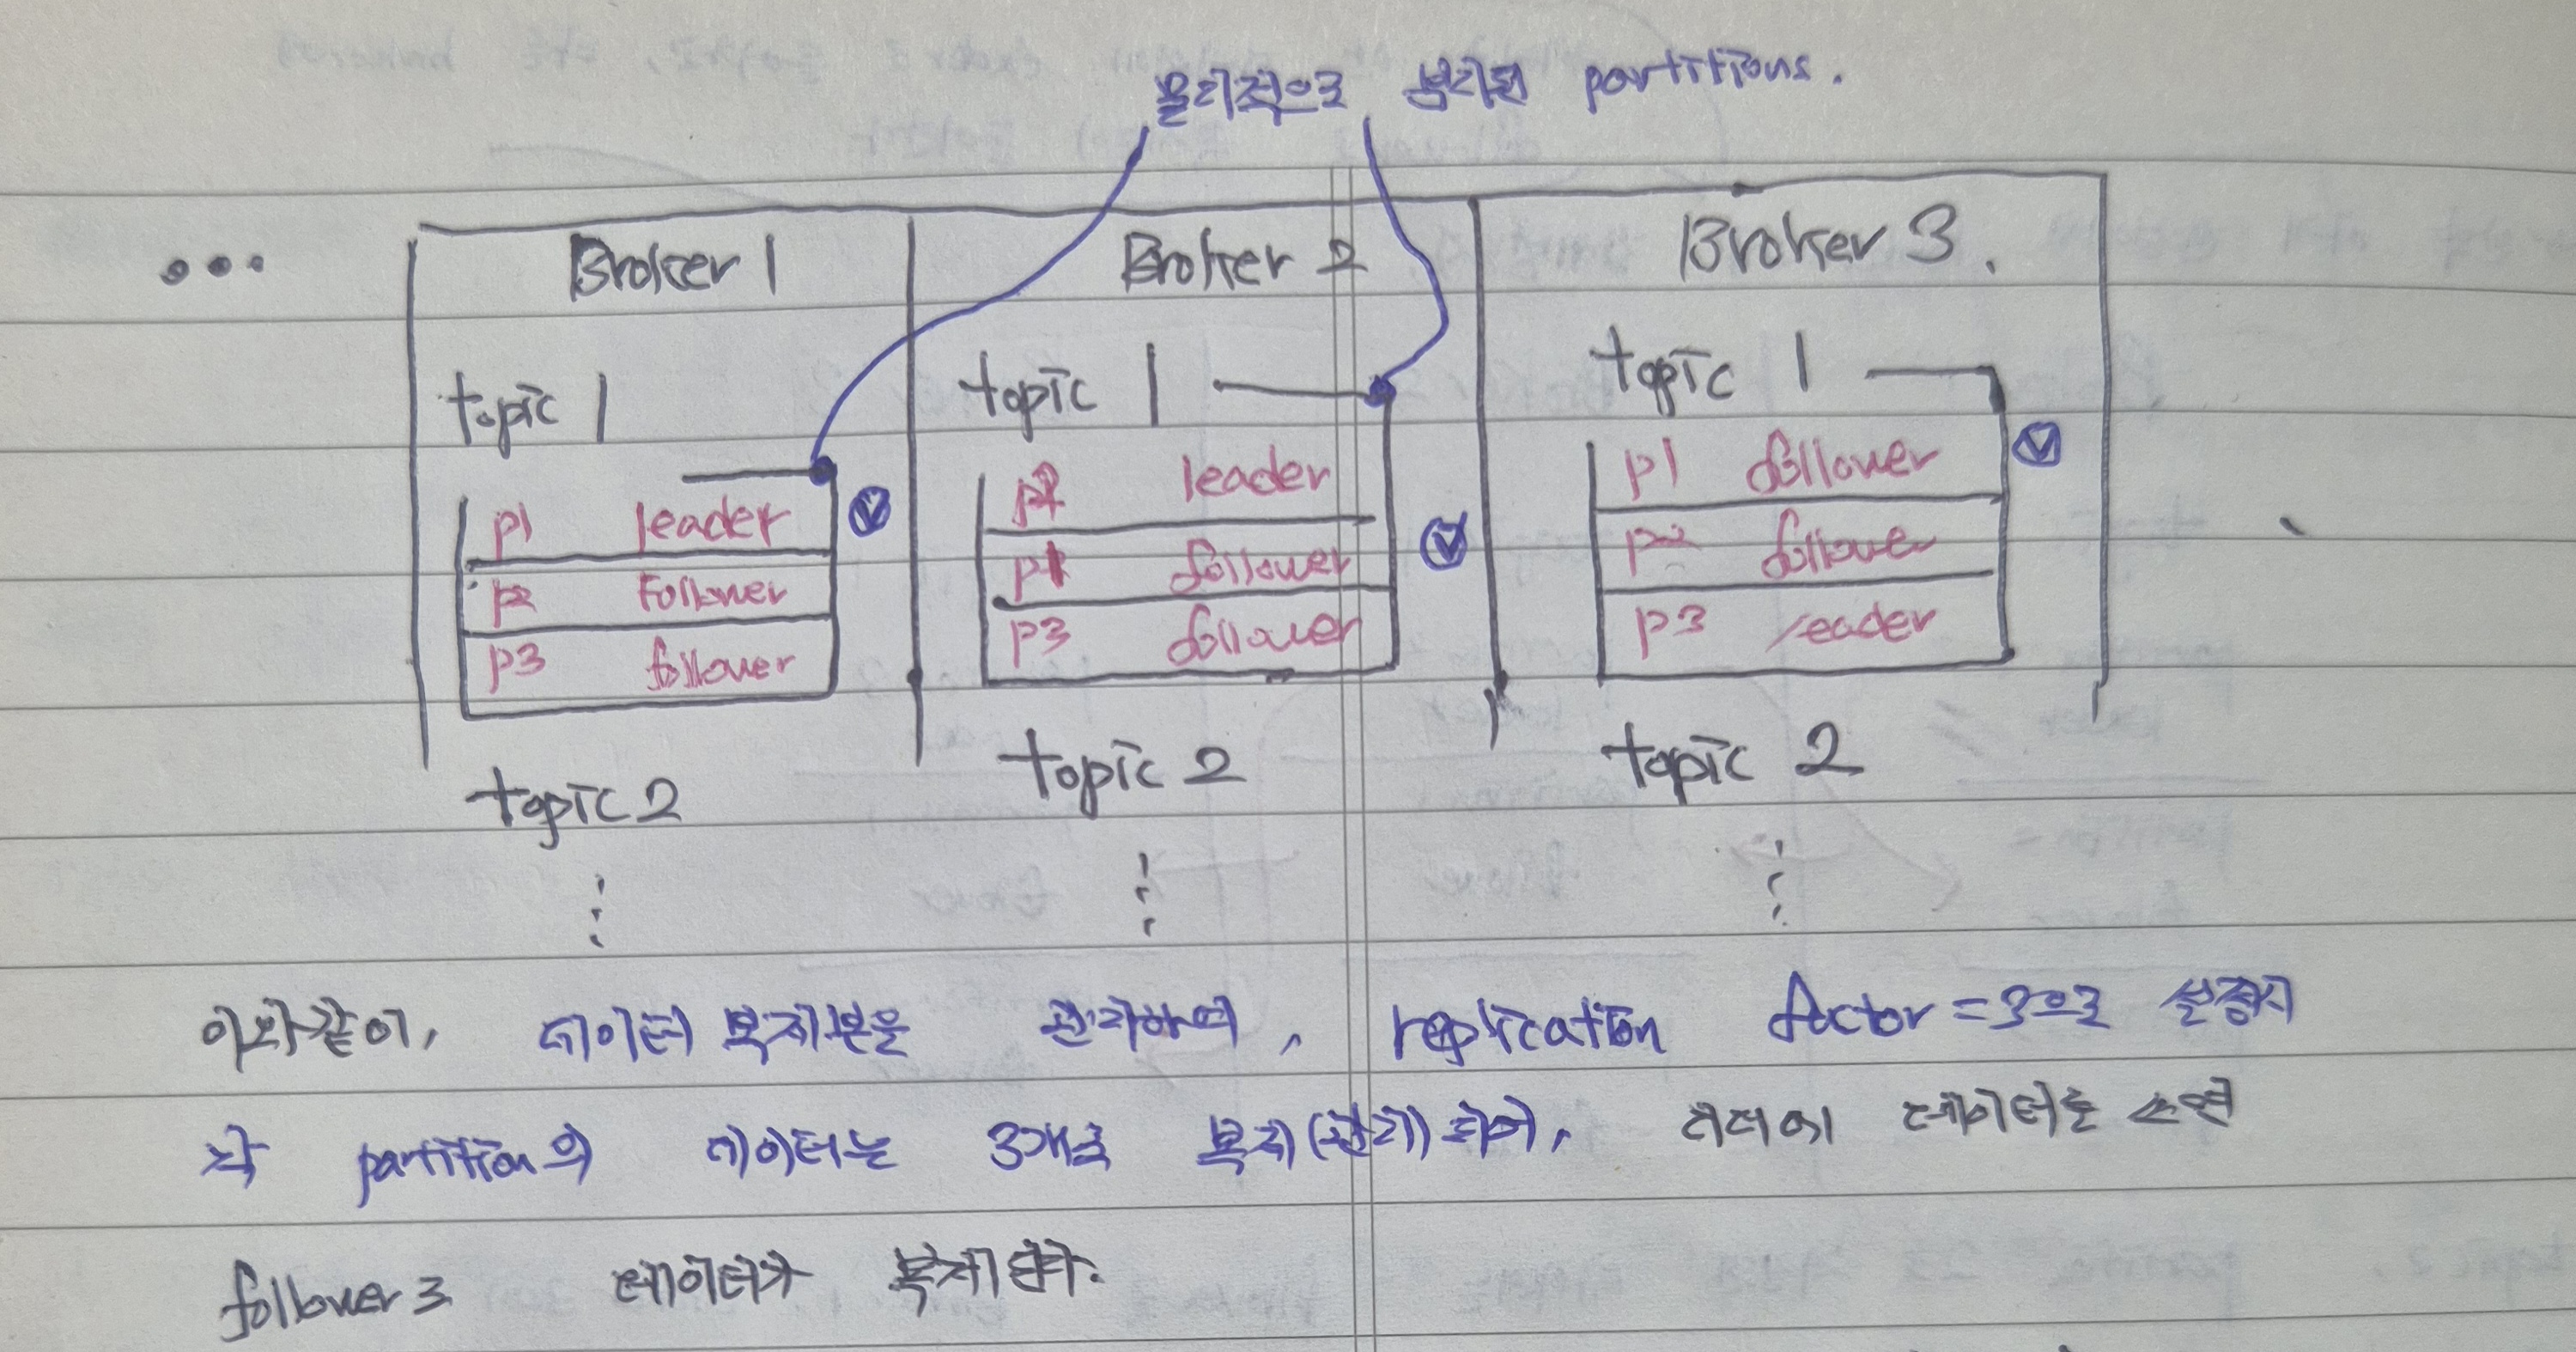 물리적으로 분리된 partitions.
... Broker 1 Broker 2 Broker 3.
topic 1 topic 1 topic 1
p1 leader p2 leader p1 follower
p2 Follower p1 follower p2 follower
p3 follower p3 follower p3 leader
topic 2 topic 2 topic 2
이와같이, 데이터 복제본을 관리하며, replication factor=3으로 설정시
각 partition의 데이터는 3개로 복제(관리)되어, 리더에 데이터를 쓰면
follower로 데이터가 복제된다.